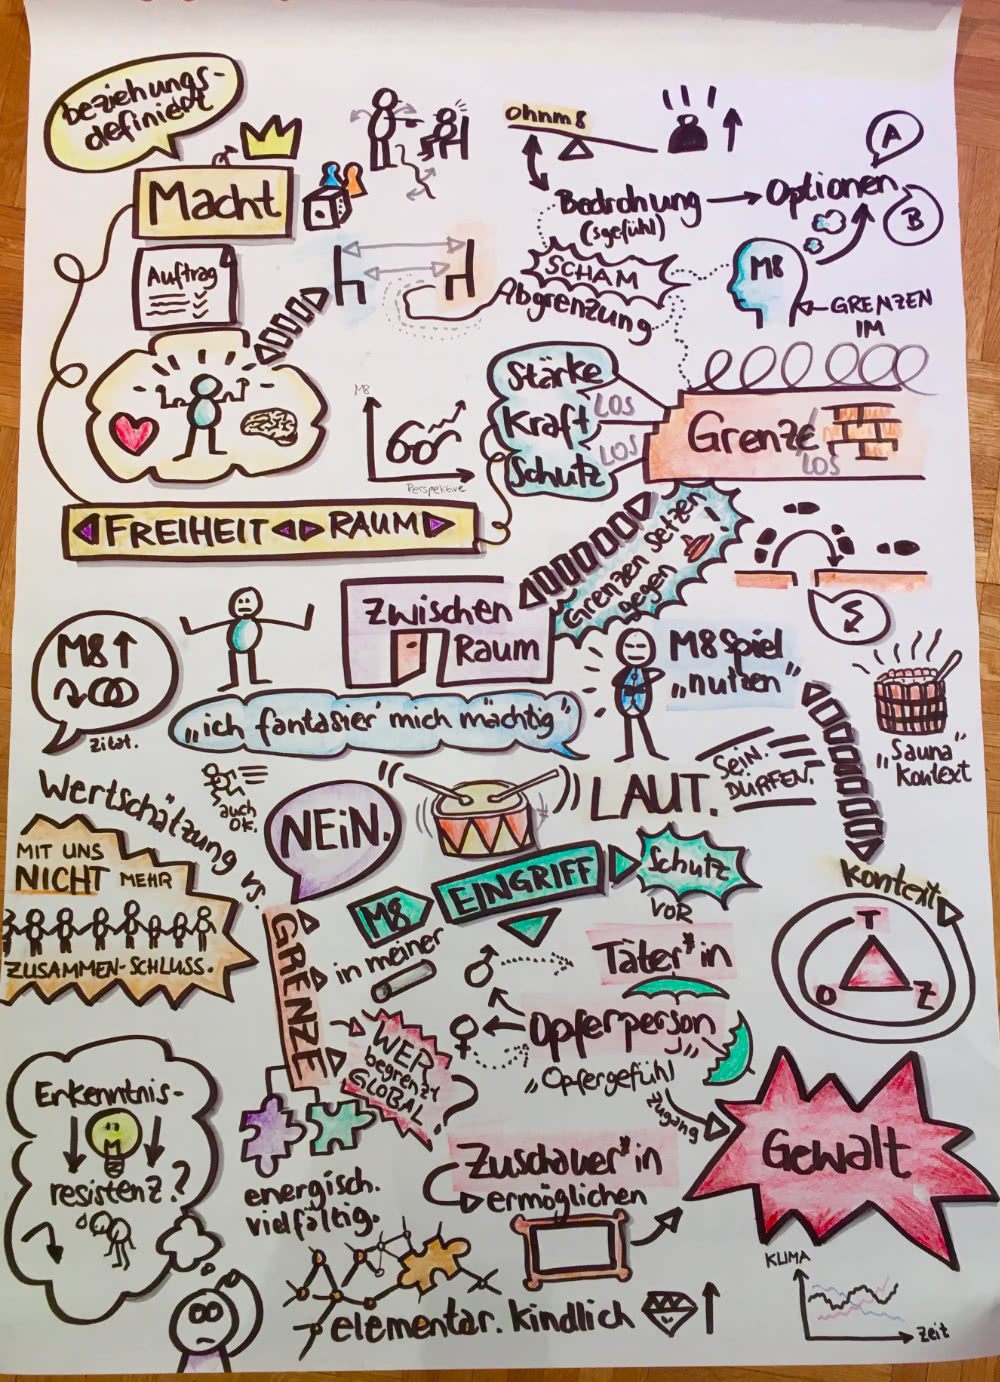 beziehungs-
definiert
Macht
Auftrag
ohnm8
Bedrohung
(sgefühl)
Optionen
A
B
SCHAM
Abgrenzung
M8
GRENZEN
IM
M8
Perspektive
Stärke
LOS
Kraft
LOS
Schutz
Grenze
LOS
FREIHEIT RAUM
Grenzen setzen
gegen
!
Zwischen
Raum
M8
zitat.
„ich fantasier' mich mächtig"
M8 Spiel
„nutzen"
„Sauna"
Kontext
Wertschätzung vs.
GRENZE
auch
OK.
NEIN.
LAUT.
SEIN.
DÜRFEN.
MIT UNS
NICHT MEHR
ZUSAMMEN-SCHLUSS.
M8
EINGRIFF
Schutz
VOR
in meiner
Täter*in
Opferperson
„Opfergefühl"
Zugang
Gewalt
Kontext
T
O
Z
WER
begrenzt
GLOBAL
?
Erkenntnis-
resistenz?
energisch.
vielfältig.
Zuschauer*in
ermöglichen
elementar. kindlich
KLIMA
Zeit